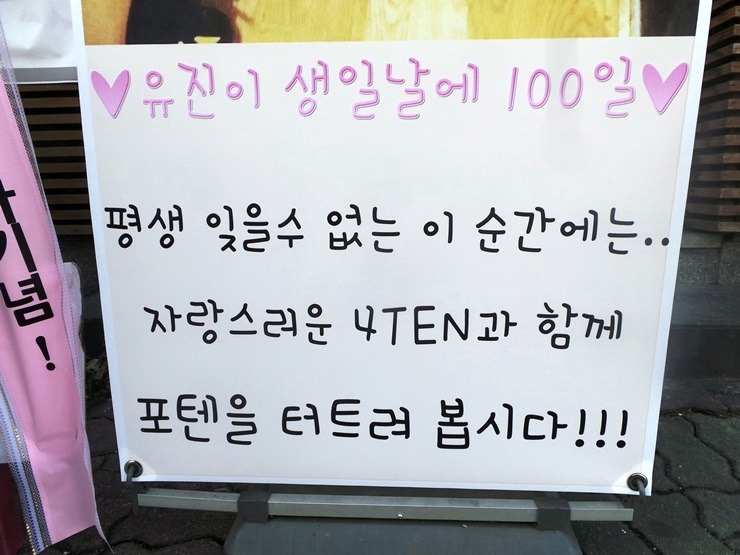 ♥유진이 생일날에 100일♥
평생 잊을수 없는 이 순간에는..
자랑스러운 4TEN과 함께
포텐을 터트려 봅시다!!!
기념!